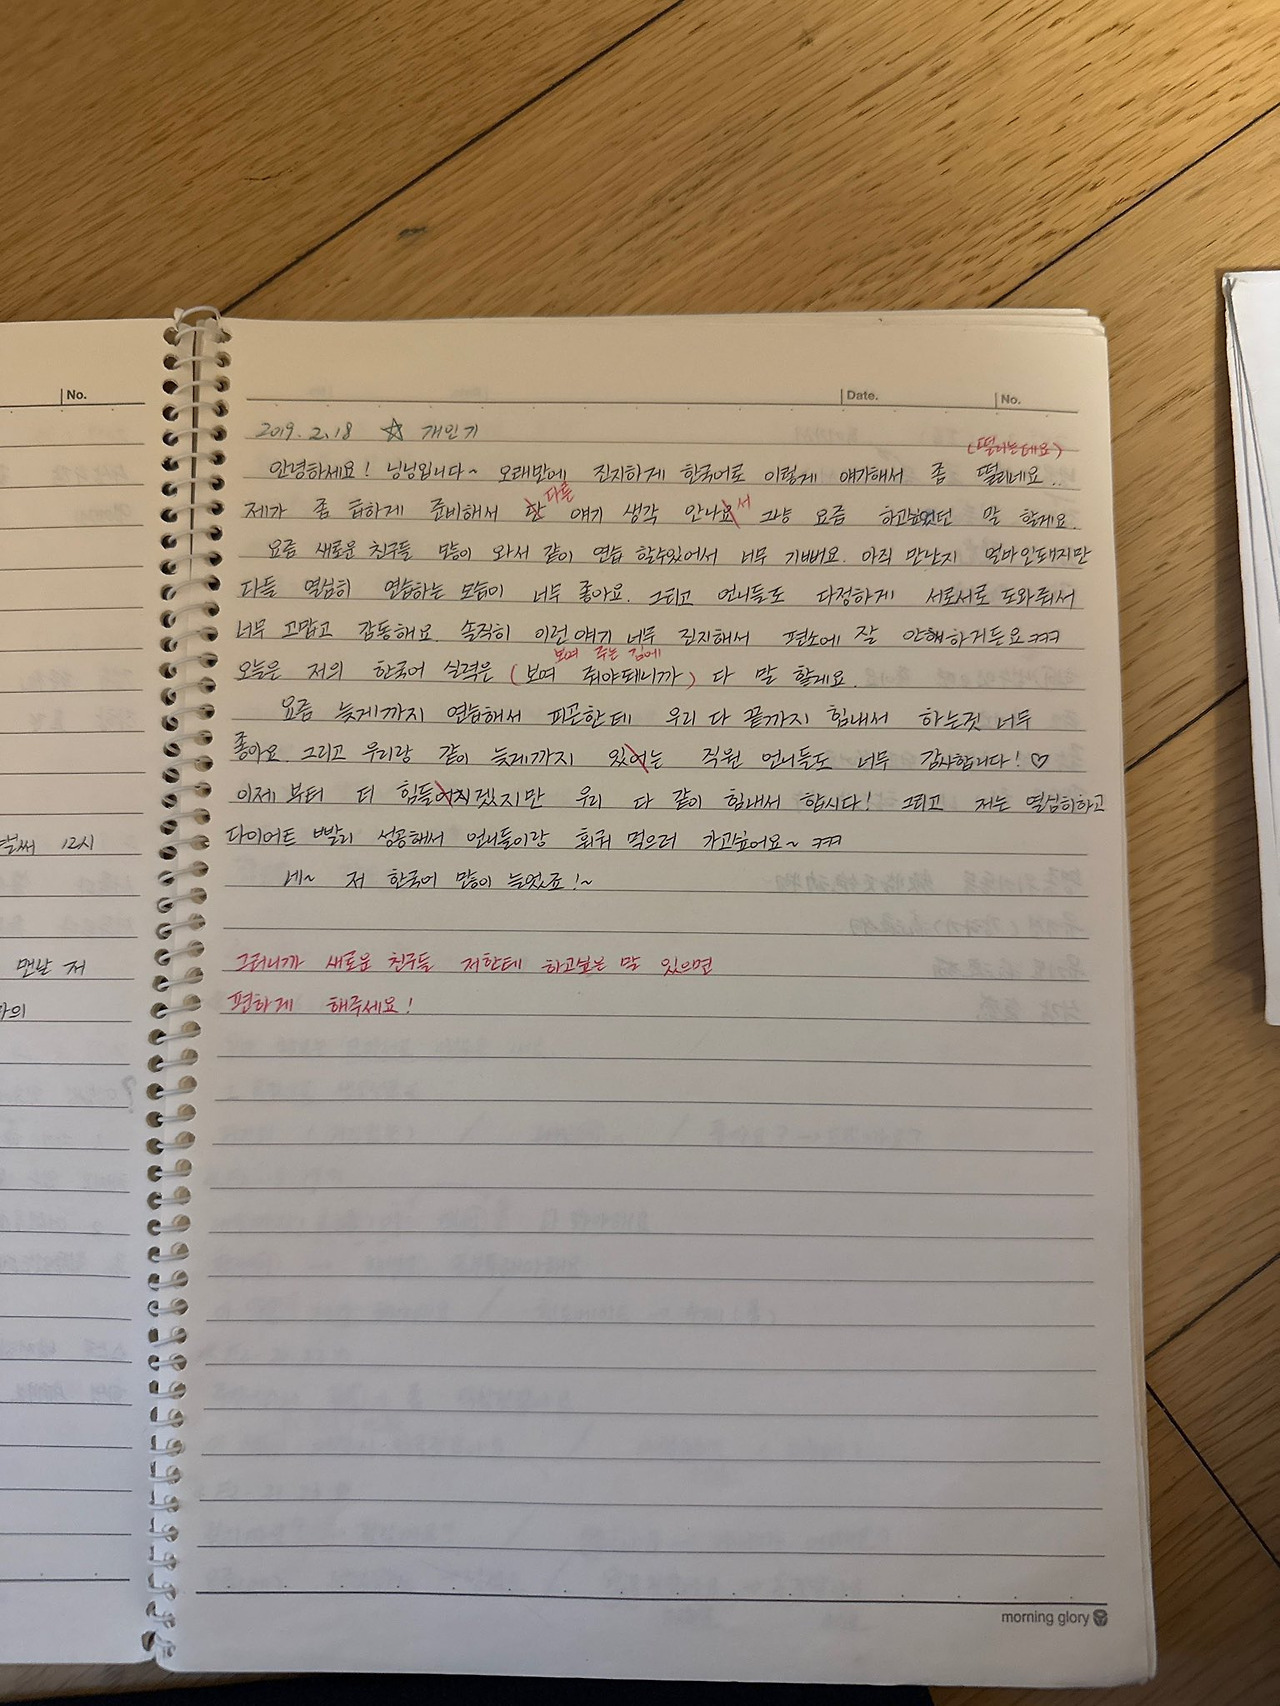 No.
Date.
No.
2019. 2. 18 ☆ 개인기
(떨리는데요)
안녕하세요! 닝닝입니다~ 오래만에 진지하게 한국어로 이렇게 얘기해서 좀 떨리네요..
다른 서
제가 좀 급하게 준비해서 딴 얘기 생각 안나요 그냥 요즘 하고싶었던 말 할게요.
요즘 새로운 친구들 많이 와서 같이 연습 할수있어서 너무 기뻐요. 아직 만난지 얼마안돼지만
다들 열심히 연습하는 모습이 너무 좋아요. 그리고 언니들도 다정하게 서로서로 도와줘서
너무 고맙고 감동해요. 솔직히 이런 얘기 너무 진지해서 평소에 잘 안해하거든요 ㅋㅋㅋ
보여 주는 김에
오늘은 저의 한국어 실력은 (보여 줘야돼니까) 다 말 할게요.
요즘 늦게까지 연습해서 피곤한데 우리 다 끝까지 힘내서 하는것 너무
좋아요. 그리고 우리랑 같이 늦게까지 있어는 직원 언니들도 너무 감사합니다! ♡
이제 부터 더 힘들어지겠지만 우리 다 같이 힘내서 합시다! 그리고 저는 열심히하고
다이어트 빨리 성공해서 언니들이랑 훠궈 먹으러 가고싶어요~ ㅋㅋㅋ
네~ 저 한국어 많이 늘었죠!~
그러니까 새로운 친구들 저한테 하고싶은 말 있으면
편하게 해주세요!
벌써 12시
맨날 저
morning glory